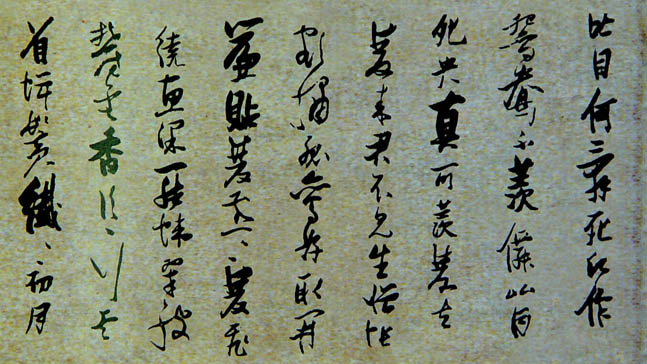 比目何辭死願作
鴛鴦不羨僊比目
鴛央真可羨雙去
雙來君不見生憎帳
額繡孤鸞好取門
簾貼雙燕〻雙飛
繞畫梁羅幃翠被
鬱金香片〻行雲
著蟬鬢纖〻初月